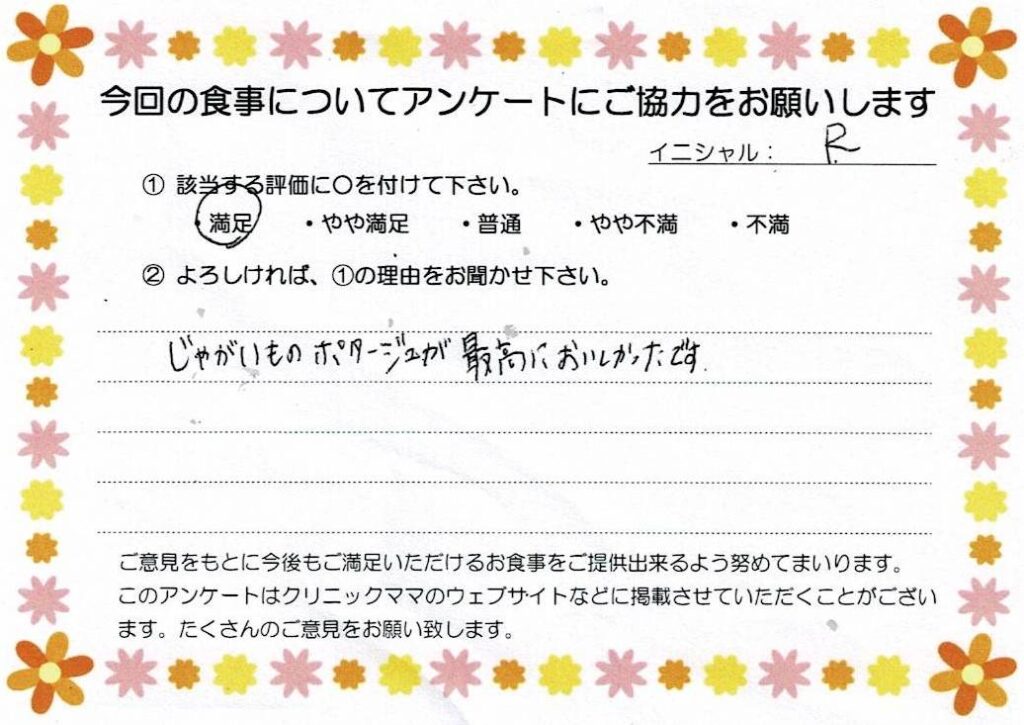 今回の食事についてアンケートにご協力をお願いします
イニシャル： R
① 該当する評価に〇を付けて下さい。
・満足 ・やや満足 ・普通 ・やや不満 ・不満
② よろしければ、①の理由をお聞かせ下さい。
じゃがいものポタージュが最高においしかったです.
ご意見をもとに今後もご満足いただけるお食事をご提供出来るよう努めてまいります。
このアンケートはクリニックママのウェブサイトなどに掲載させていただくことがござい
ます。たくさんのご意見をお願い致します。